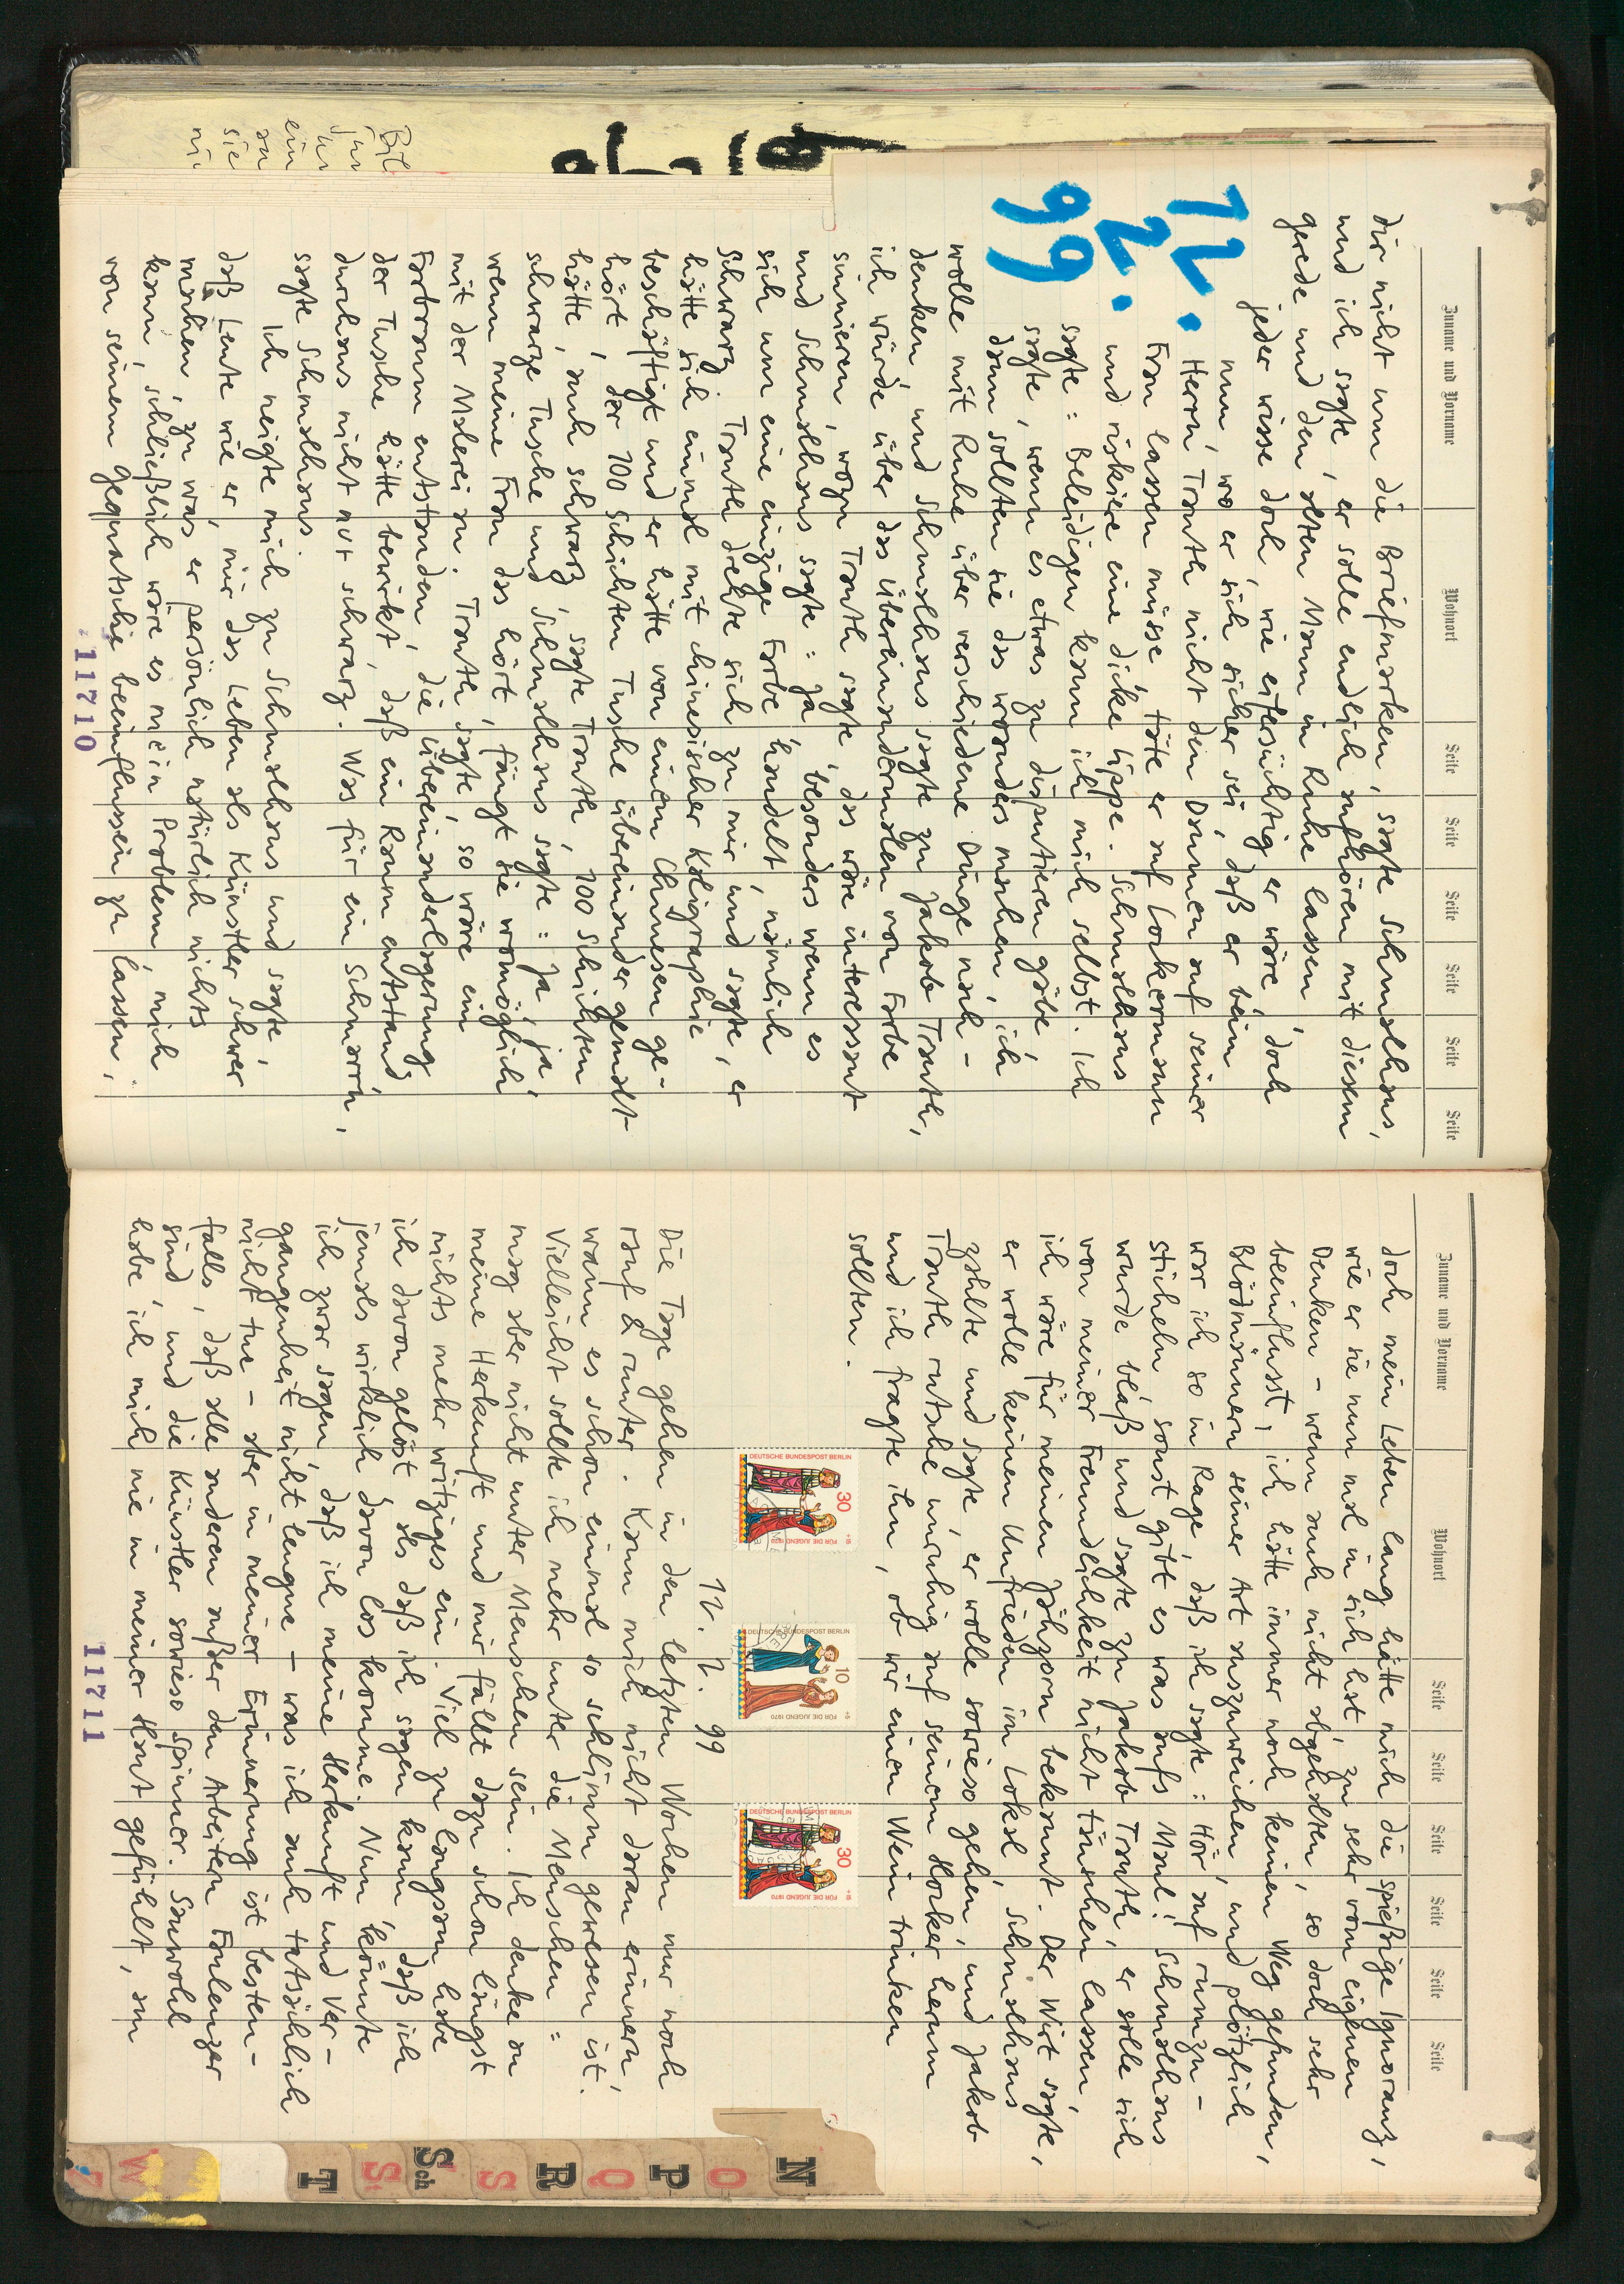 Zuname und Vorname Wohnort Seite Seite Seite Seite Seite Seite
dir nicht um die Briefmarken, sagte Schmalhans,
und ich sagte, er solle endlich aufhören mit diesem
gerede und den alten Mann in Ruhe lassen,
jeder wisse doch, wie eifersüchtig er wäre, doch
nun, wo er sich sicher sei, daß er beim
Herrn Trauth nicht den Daumen auf seiner
Frau lassen müsse, täte er auf Lockermann
und riskiere eine dicke Lippe. Schmalhans
sagte: Beleidigen kann ich mich selbst. Ich
sagte, wenn es etwas zu disputieren gäbe,
dann sollten sie das woanders machen, ich
wolle mit Ruhe über verschiedene Dinge nach-
denken, und Schmalhans sagte zu Jakob Trauth,
ich würde über das übereinandermalen von Farbe
sinnieren, wozu Trauth sagte, das wäre interessant
und Schmalhans sagte: Ja, besonders wenn es
sich um eine einzige Farbe handelt, nämlich
Schwarz. Trauth drehte sich zu mir und sagte, er
hätte sich einmal mit chinesischer Kaligraphie
beschäftigt und er hätte von einem Chinesen ge-
hört, der 100 Schichten Tusche übereinander gemalt
hätte, auch schwarz, sagte Trauth, 100 Schichten
schwarze Tusche und Schmalhans sagte: Ja, ja,
wenn meine Frau das hört, fängt sie womöglich
mit der Malerei an. Trauth sagte, so wäre ein
Farbraum entstanden, die übereinanderlagerung
der Tusche hätte bewirkt, daß ein Raum entstand,
durchaus nicht nur schwarz. Was für ein Schmarrn,
sagte Schmalhans.
Ich neigte mich zu Schmalhans und sagte,
daß Leute wie er, mir das Leben als Künstler schwer
machen, zu was er persönlich natürlich nichts
kann, schließlich wäre es mein Problem, mich
von seinem gequatsche beeinflussen zu lassen,
11710
12.
2.
99
Zuname und Vorname Wohnort Seite Seite Seite Seite Seite Seite
doch mein Leben lang hätte mich die spießige Ignoranz,
wie er sie nun mal in sich hat, zu sehr vom eigenen
Denken - wenn auch nicht abgehalten, so doch sehr
beeinflusst, ich hätte immer noch keinen Weg gefunden,
Blödmännern seiner Art auszuweichen, und plötzlich
war ich so in Rage, daß ich sagte: Hör auf rumzu-
sticheln, sonst gibt es was aufs Maul! Schmalhans
wurde blaß und sagte zu Jakob Trauth, er solle sich
von meiner Freundlichkeit nicht täuschen lassen,
ich wäre für meinen Jähzorn bekannt. Der Wirt sagte,
er wolle keinen Unfrieden im Lokal, Schmalhans
zahlte und sagte, er wolle sowieso gehen, und Jakob
Trauth rutsche unruhig auf seinem Hocker herum
und ich fragte ihn, ob wir einen Wein trinken
sollten.
DEUTSCHE BUNDESPOST BERLIN 30 FÜR DIE JUGEND 1970
DEUTSCHE BUNDESPOST BERLIN 10 FÜR DIE JUGEND 1970
DEUTSCHE BUNDESPOST BERLIN 30 FÜR DIE JUGEND 1970
12. 2. 99
Die Tage gehen in den letzten Wochen nur noch
rauf & runter. Kann mich nicht daran erinnern,
wann es schon einmal so schlimm gewesen ist.
Vielleicht sollte ich mehr unter die Menschen =
mag aber nicht unter Menschen sein. Ich denke an
meine Herkunft und mir fällt dazu schon längst
nichts mehr witziges ein. Viel zu langsam habe
ich davon gelöst als daß ich sagen kann, daß ich
jemals wirklich davon los komme. Nun, könnte
ich zwar sagen, daß ich meine Herkunft und Ver-
gangenheit nicht leugne - was ich auch tatsächlich
nicht tue - aber in meiner Erinnerung ist besten-
falls, daß alle anderen außer den Arbeitern Faulenzer
sind, und die Künstler sowieso Spinner. Sauwohl
habe ich mich nie in meiner Haut gefühlt, an
11711
N O P Q R S Sch St T W Z